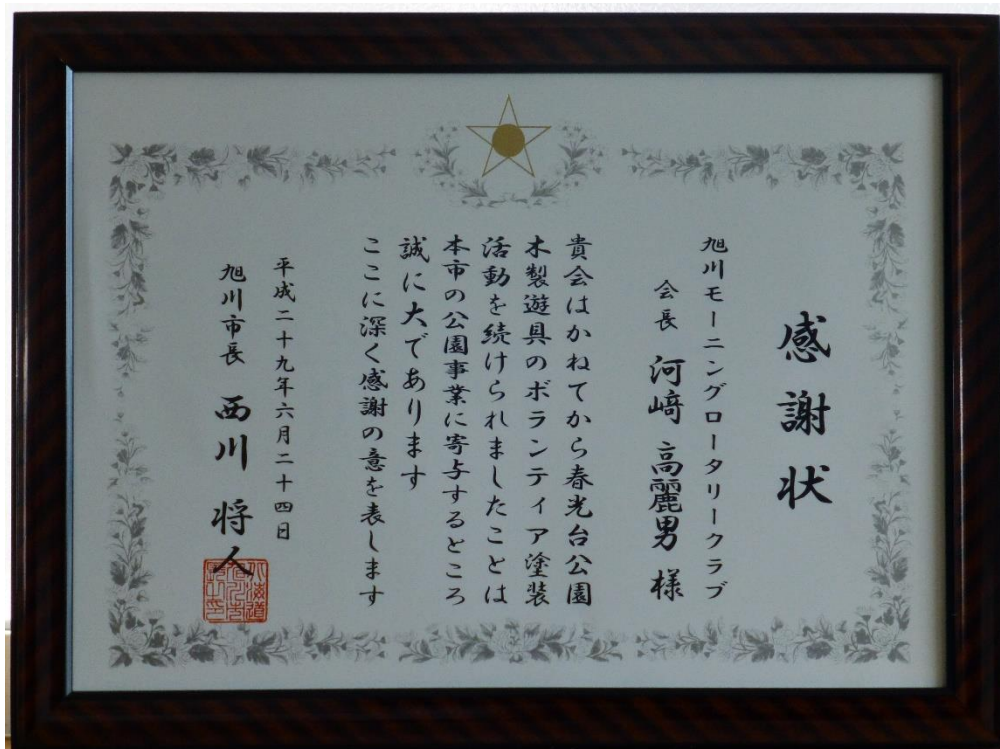 感謝状
旭川モーニングロータリークラブ
会長 河﨑 高麗男 様
貴会はかねてから春光台公園
木製遊具のボランティア塗装
活動を続けられましたことは
本市の公園事業に寄与するところ
誠に大であります
ここに深く感謝の意を表します
平成二十九年六月二十四日
旭川市長 西川 将人